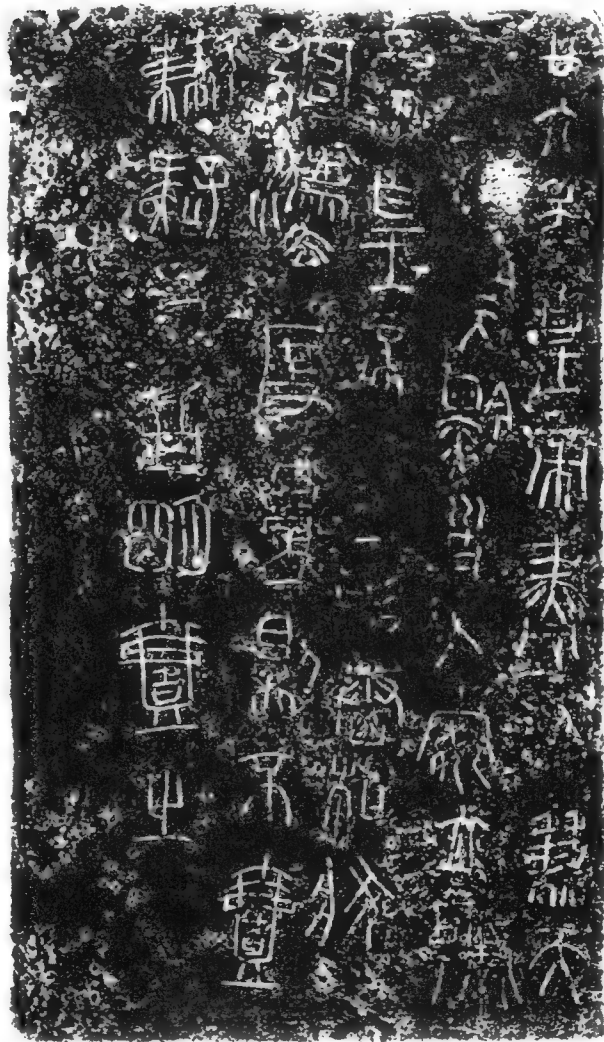 廿六年皇帝盡并兼天
下諸矦黔首大安立號
為皇帝乃詔丞相狀
綰灋度量則不壹
歉疑者皆明壹之